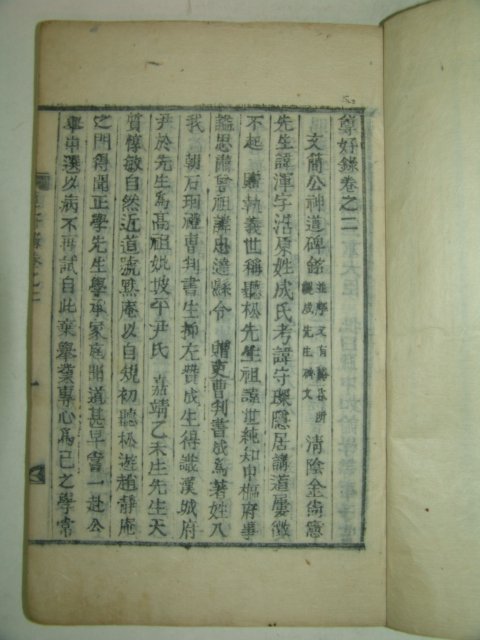 尊好錄卷之二
文簡公神道碑銘 淸陰金尙憲
先生諱渾字浩原姓成氏考諱守琛隱居講道屢徵
不起 贈執義世稱聽松先生祖諱世純知中樞府事
謚思肅曾祖諱忠達縣令 贈吏曹判書成爲著姓入
我 朝石珚禮曹判書生抑左贊成生得識漢城府
尹於先生爲高祖妣坡平尹氏 嘉靖乙未生先生天
質惇敏自然近道號默庵以自規初聽松遊趙靜庵
之門得聞正學先生學承家庭聞道甚早嘗一赴公
擧中選以病不再試自此棄擧業專心爲己之學常